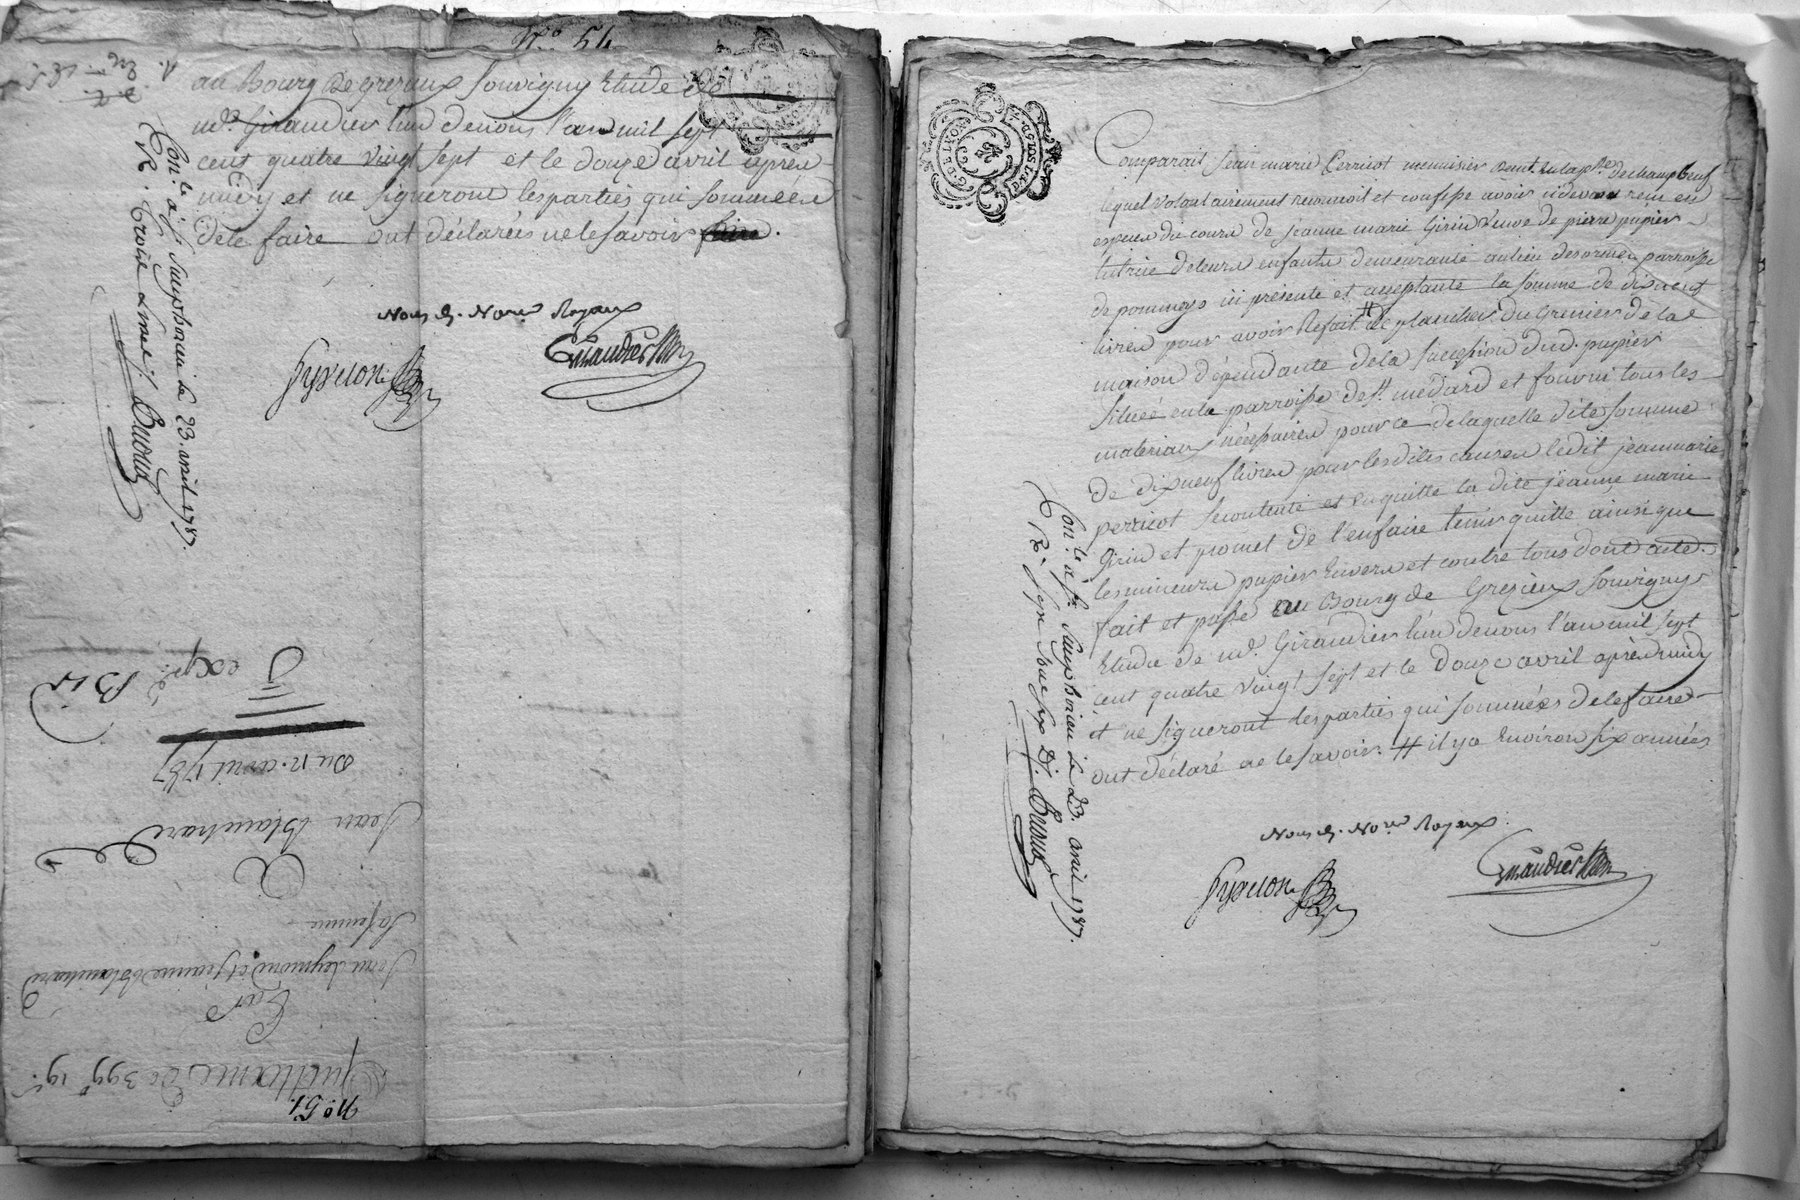 N.o 51
au Bourg de grezieux souvigny Etude de
m.e Giraudier l'un de nous l'an mil sept
cent quatre vingt sept et le douze avril après
midy et ne signeront les parties qui sommées
de le faire ont déclarées ne le savoir faire.
Nous d. No.res Royaux
Giraudier No.re
Con.lé à S.t Simphorien le 23. avril 1787.
R.
exp.é Bis
Du 12. avril 1787
Jean Blanchard
A
Jean Reymond et Jeanne Blanchard
sa femme
Par
Quittance de 399 lt 19 s.
N.o 51
G. DE LYON
Comparait Jean marie Perricot menuisier demt. en la p.sse de chambeuf
lequel volontairement reconnoit et confesse avoir cidevant reçu en
espèces du cours de Jeanne marie Girin veuve de pierre pupier
tutrice de leurs enfants demeurante au lieu des ormes parroisse
de pommeys ici présente et acceptante la somme de dixneuf
livres pour avoir Refait # le plancher du Grenier de la
maison dépendante de la succession dud. pupier
située en la parroisse de st. medard et fourni tous les
materiaux nécessaires pour ce de laquelle dite somme
de dixneuf livres pour les dites causes ledit jean marie
perricot se contente et en quitte la dite jeanne marie
Girin et promet de l'en faire tenir quitte ainsi que
les mineurs pupier envers et contre tous dont acte.
fait et passé au Bourg de Grezieux Souvigny
Etude de m.e Giraudier l'un de nous l'an mil sept
cent quatre vingt sept et le douze avril après midy
et ne signeront les parties qui sommées de le faire
ont déclaré ne le savoir. # il y a environ six années
Nous d. No.res Royaux
Giraudier No.re
Con.lé à S.t Simphorien le 23. avril 1787.